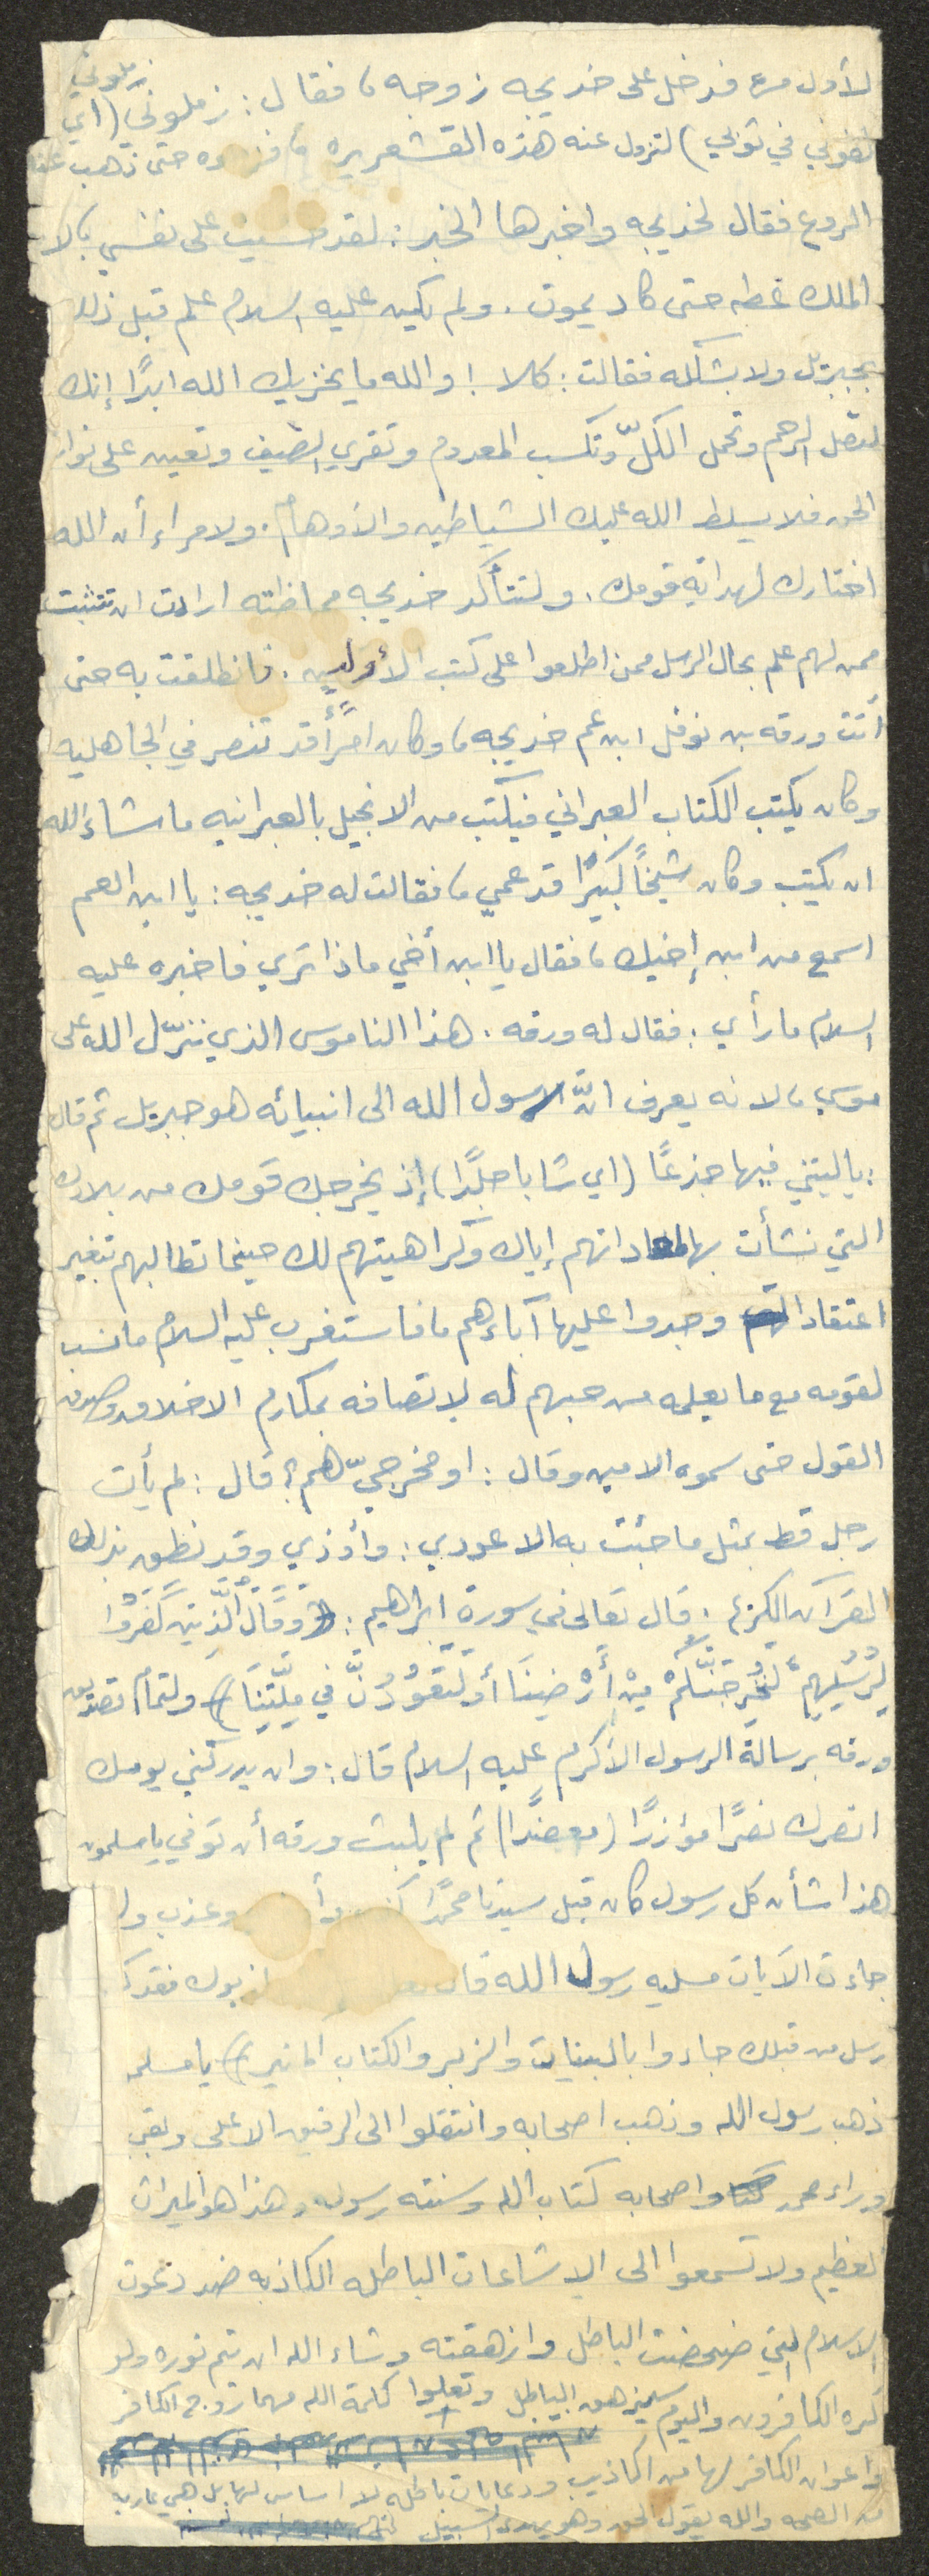 لأول مره فدخل على خديجه زوجه، فقال: زملوني زملوني (اي
لفوني في ثوبي) لتزول عنه هذه القشعريره، حتى ذهب عنه
الروع فقال لخديجه واخبرها الخبر: لقد خشيت على نفسي، لان
الملك غطه حتى كاد يموت. ولم يكن عليه السلام علم قبل ذلك
بجبريل ولا بشكله فقالت: كلا! والله ما يخزيك الله ابدًا إنك
لتصل الرحم وتحمل الكلّ وتكسب المعدوم وتقري الضيف وتعين على نوائب
الحق فلا يسلط الله عليك الشياطين والأوهام. ولا مراء أن الله
اختارك لهداية قومك. ولتتأكد خديجه مما ظنته ارادت ان تتثبت
ممن لهم علم بحال الرسل ممن اطلعوا على كتب الأولين. فانطلقت به حتى
أتت ورقه بن نوفل ابن عم خديجه، وكان امرًأ قد تنصر في الجاهليه
وكان يكتب الكتاب العبراني فيكتب من الانجيل بالعبرانيه ما شاء الله
ان يكتب وكان شيخًا كبيرًا قد عمي، فقالت له خديجه: يا ابن العم
اسمع من ابن إخيك، فقال يا ابن أخي ماذا ترى فاخبره عليه
السلام ما رأي: فقال له ورقه. هذا الناموس الذي نزّل الله على
موسى، لانه يعرف انّ رسول الله الى انبيائه هو جبريل ثم قال
: ياليتني فيها جذعًا (اي شابا جلدًا) إذ يخرجك قومك من بلادك
التي نشأت بها لمعاداتهم إياك وكراهيتهم لك حينما تطالبهم بتغير
اعتقادات وجدوا عليها آباءهم، فاستغرب عليه السلام ما نسب
لقومه مع ما يعلمه من حبهم له لاتصافه بمكارم الاخلاق وصدق
القول حتى سموه الامين وقال: او مخرجيّ هم؟ قال: لم يأت
رجل قط بمثل ما جئت به الا عودي: وأوذي وقد نطق بذلك
القرآن الكريم. قال تعالى في سورة ابراهيم: (وَقَالَ الَّذِينَ كَفَرُوا
لِرُسُلِهِمْ لَنُخْرِجَنَّكُمْ مِنْ أَرْضِينَا أَو لَتَعُودُنَّ فِي مِلَّتِنَا) ولتمام تصديق
ورقه برسالة الرسول الأكرم عليه السلام قال: وان يدركني يومك
انصرك نصرًا مؤزرًا (معضدًا) ثم لم يلبث ورقه أن توفي يا مسلمون
هذا شأن كل رسول كان قبل سيدنا محمدًا وعذب ولـ
جاءت الآيات مسليه رسول الله فقد كـ
رسل من قبلك جاءوا بالبينات والزبر والكتاب المنير) يا مسلمـ
ذهب رسول الله وذهب اصحابه وانتقلوا الى الرفيق الاعلى وبقي
وراء محمد واصحابه كتاب الله وسنته رسوله وهذا هو الميراث
العظيم ولا تسمعوا الى الاشاعات الباطله الكاذبه ضد دعوت
الاسلام التي ضحضت الباطل وازهقته وشاء الله ان يتم نوره ولو
كره الكافرون واليوم سيزهق الباطل وتعلوا كلمة الله مهما تزوج الكافر
واعوان الكافر لها من اكاذيب ودعايات باطله لا اساس لها بل هي عاريه
من الصحه والله يقول الحق وهو يهدي السبيل